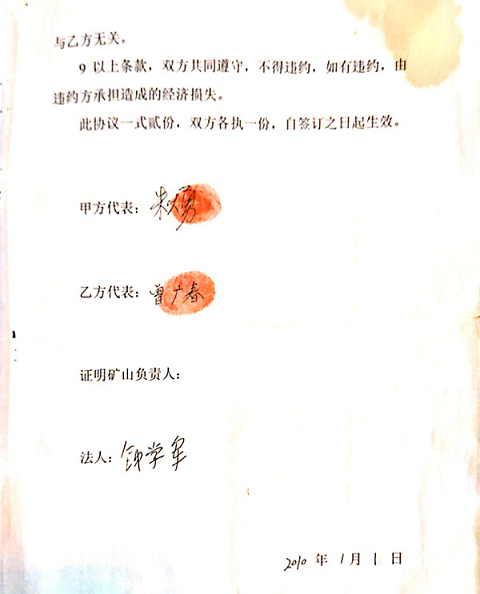 与乙方无关。
9 以上条款，双方共同遵守，不得违约，如有违约，由
违约方承担造成的经济损失。
此协议一式贰份，双方各执一份，自签订之日起生效。
甲方代表：朱勇
乙方代表：曾广春
证明矿山负责人：
法人：钟学军
2010 年 1 月 1 日